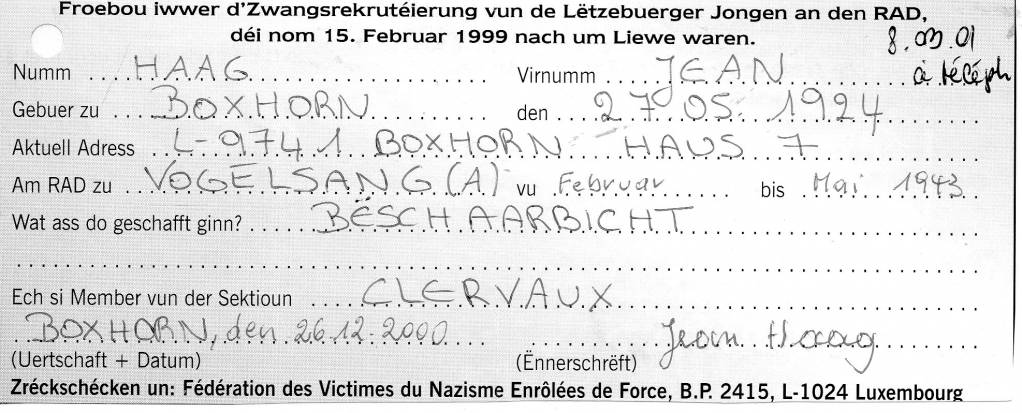 Froebou iwwer d'Zwangsrekrutéierung vun de Lëtzebuerger Jongen an den RAD,
déi nom 15. Februar 1999 nach um Liewe waren.
8.03.01
Numm .... HAAG Virnumm .... JEAN à téléph
Gebuer zu ... BOXHORN den ... 27.05.1924
Aktuell Adress .. L-9741 BOXHORN HAUS 7
Am RAD zu .. VOGELSANG (A) vu Februar bis Mai 1943
Wat ass do geschafft ginn? ...... BËSCHAARBICHT
Ech si Member vun der Sektioun .... CLERVAUX
BOXHORN, den 26.12.2000 Jean Haag
(Uertschaft + Datum) (Ënnerschrëft)
Zréckschécken un: Fédération des Victimes du Nazisme Enrôlées de Force, B.P. 2415, L-1024 Luxembourg